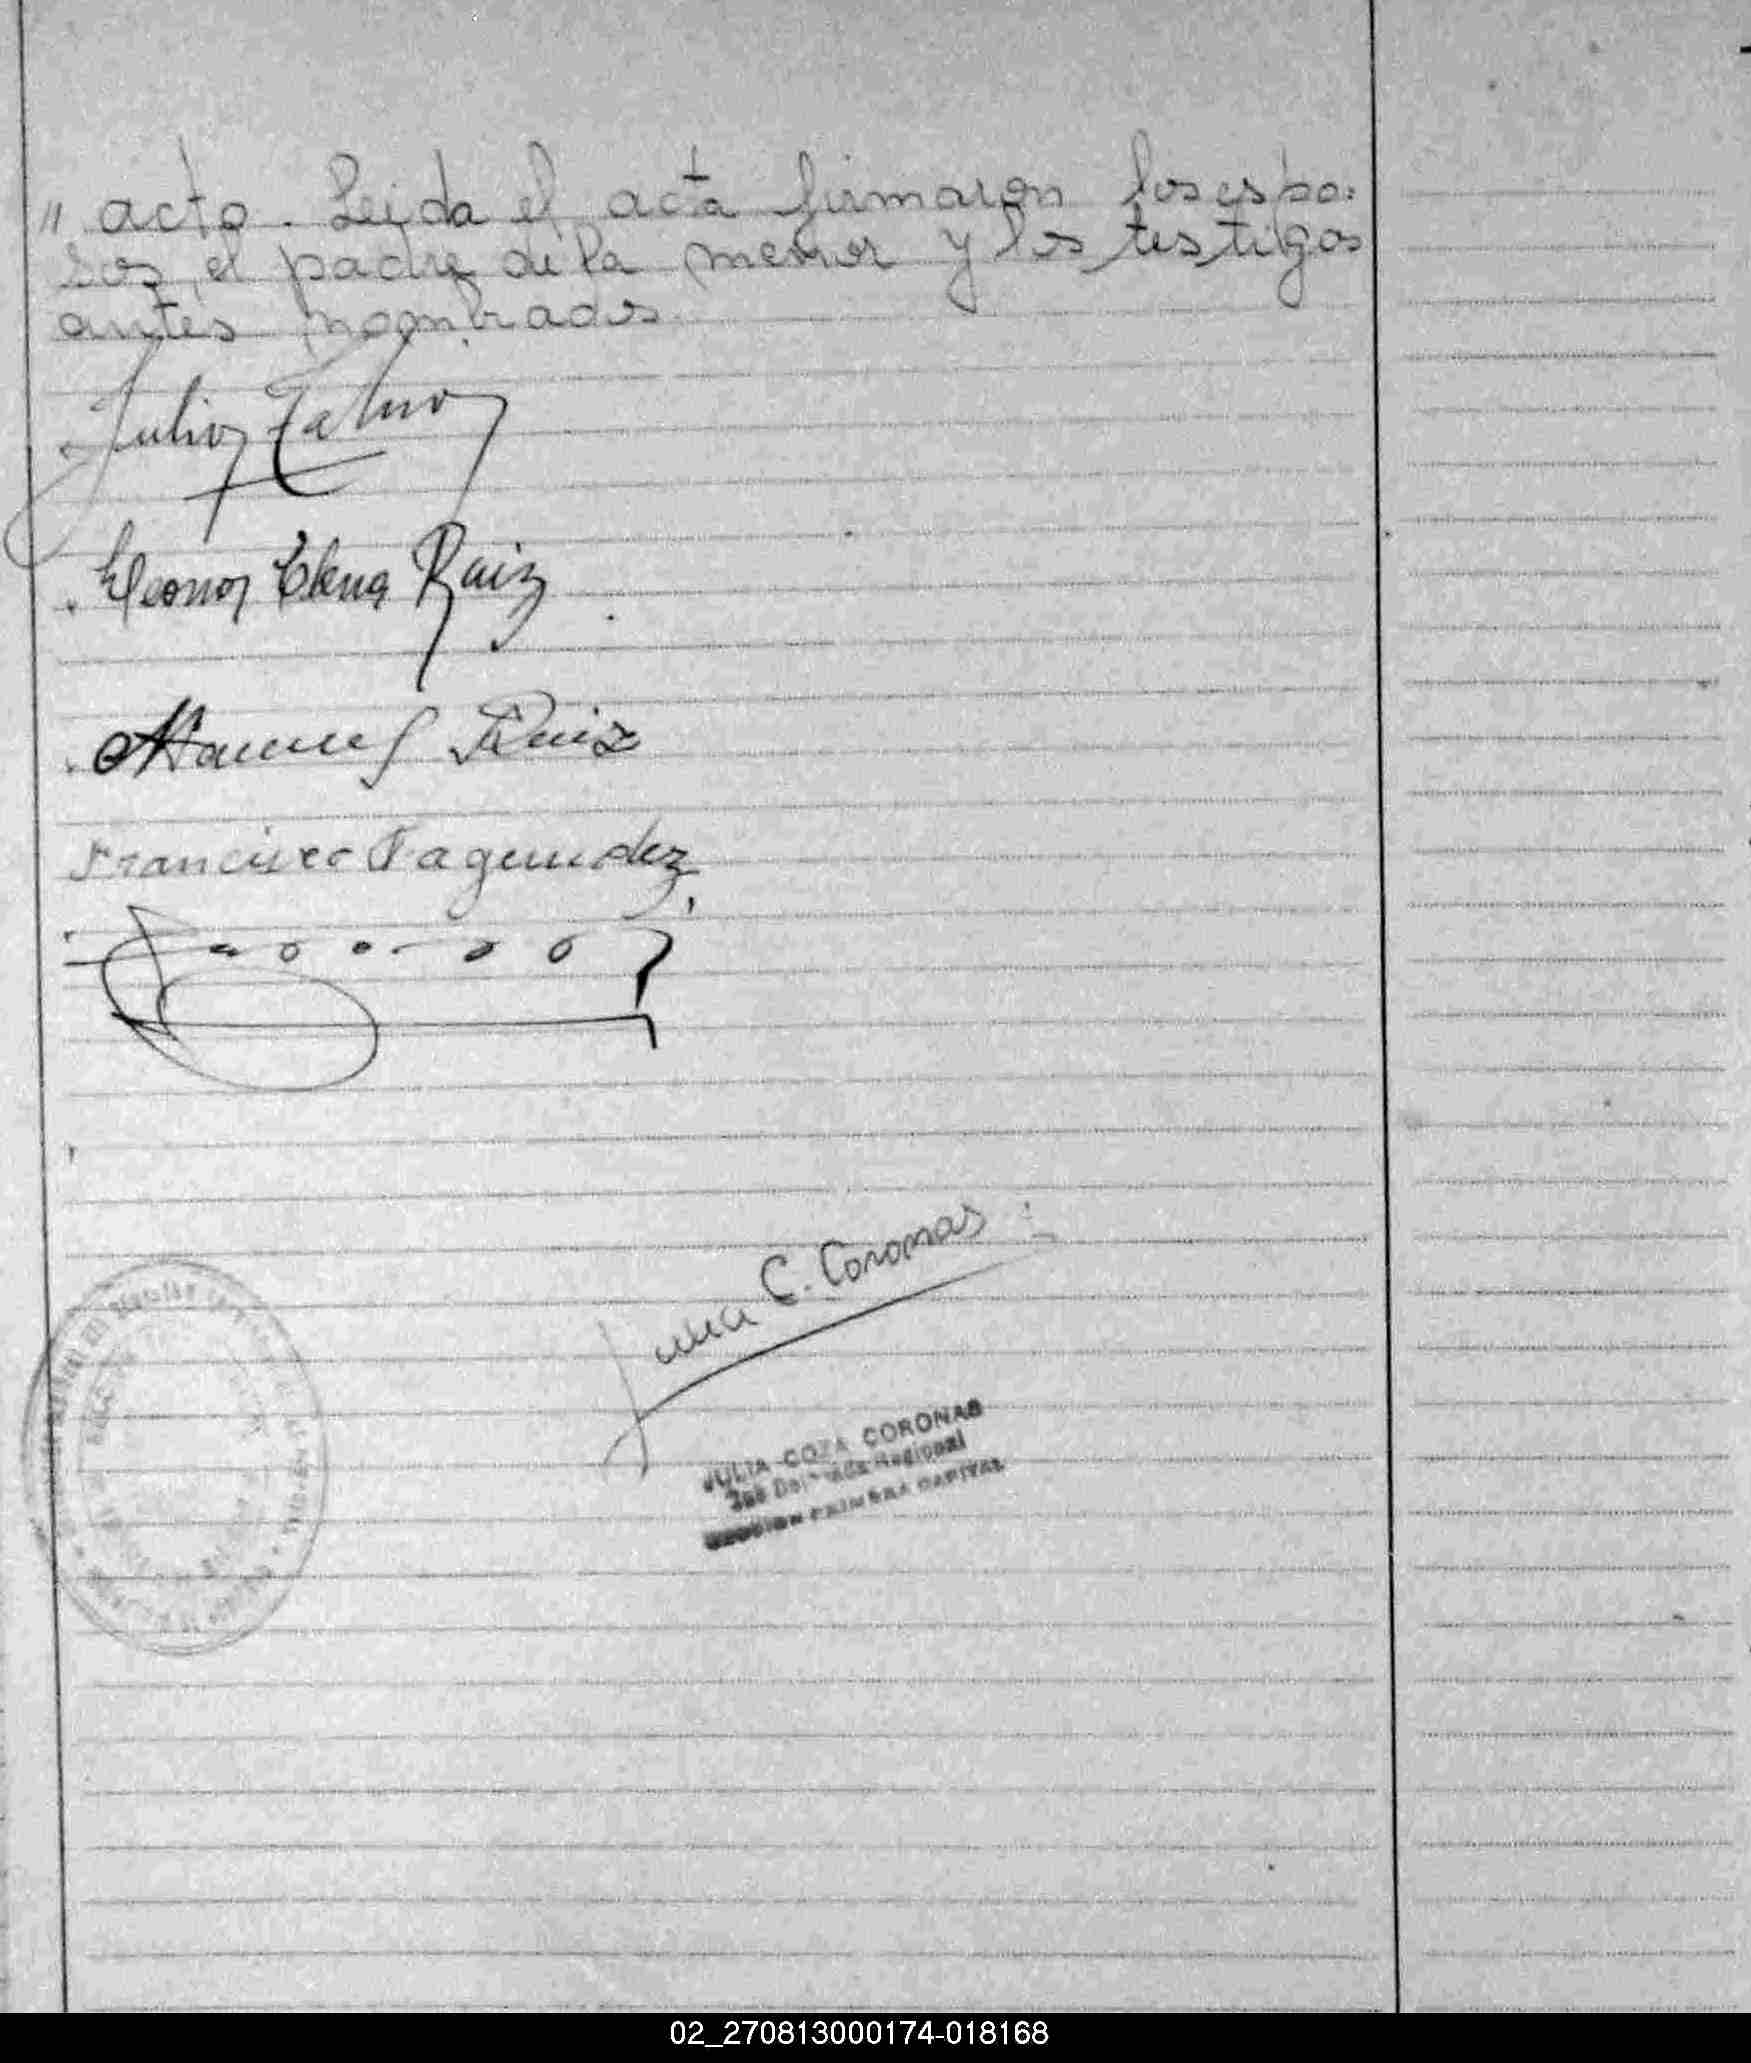 " acto. Leida el acta firmaron los espo=
sos, el padre de la menor y los testigos
antes nombrados
Julio
Leonor Elena Ruiz
Manuel Ruiz
Francisco Fagundez
Julia C. Coronas
JULIA COZA CORONAS
Regional
PRIMERA CAPITAL
02_270813000174-018168